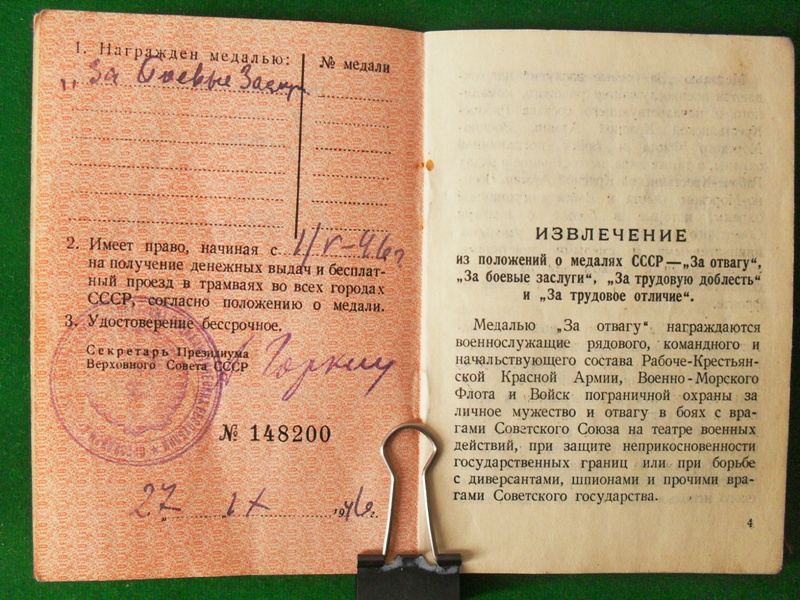 1. Награжден медалью:
№ медали
„За боевые Заслуг
2. Имеет право, начиная с 1/V-46г
на получение денежных выдач и бесплат-
ный проезд в трамваях во всех городах
СССР, согласно положению о медали.
3. Удостоверение бессрочное.
Секретарь Президиума
Верховного Совета СССР
Горкин
№ 148200
27 IX 1946г.
ИЗВЛЕЧЕНИЕ
из положений о медалях СССР,—„За отвагу“,
„За боевые заслуги“, „За трудовую доблесть“
и „За трудовое отличие“.
Медалью „За отвагу“ награждаются
военнослужащие рядового, командного и
начальствующего состава Рабоче-Крестьян-
ской Красной Армии, Военно-Морского
Флота и Войск пограничной охраны за
личное мужество и отвагу в боях с вра-
гами Советского Союза на театре военных
действий, при защите неприкосновенности
государственных границ или при борьбе
с диверсантами, шпионами и прочими вра-
гами Советского государства.
4